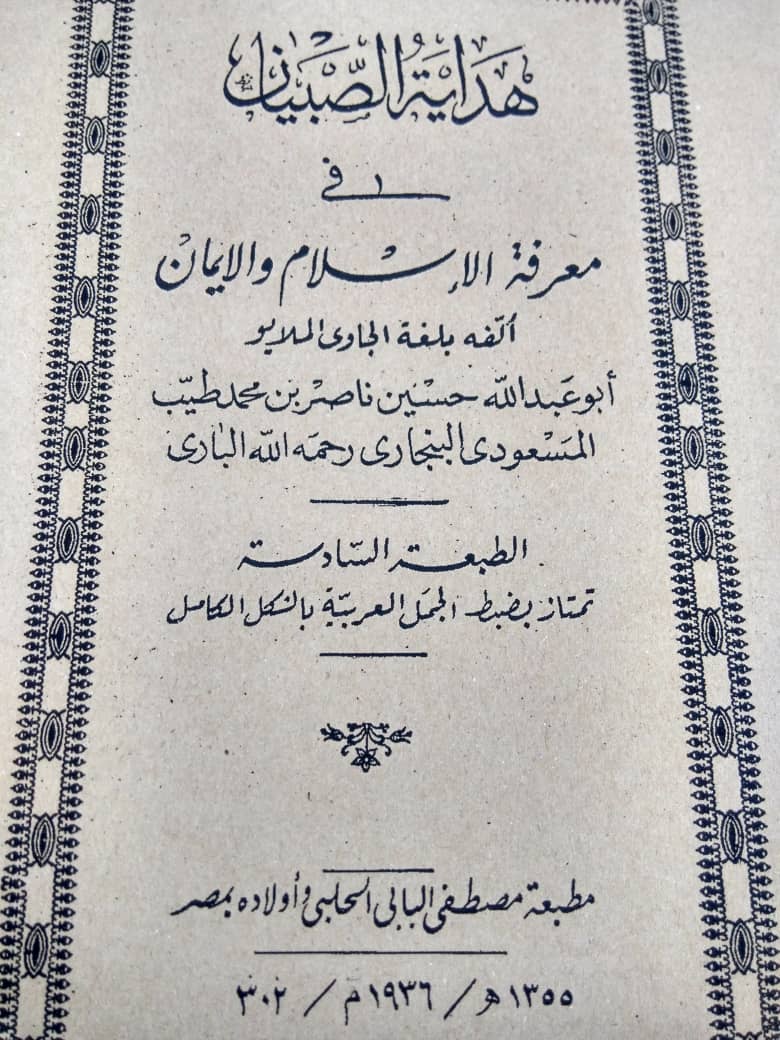 هَدَايَةُ الصِّبْيَانْ
فى
معرفة الإسْلام والايمانْ
ألّفه بلغة الجاوى الملايو
أبو عَبد الله حسْين ناصرْ بن محمد طيّب
المَسْعودى البنجارى رحمَه الله البَارى
الطبعة السّادسة
تمتاز بضبط الجمَل العربيّة بالشكل الكامل
مطبعة مصطفى البابى الحلبى وأولاده بمصر
١٣٥٥ هـ / ١٩٣٦ م / ٣٠٢